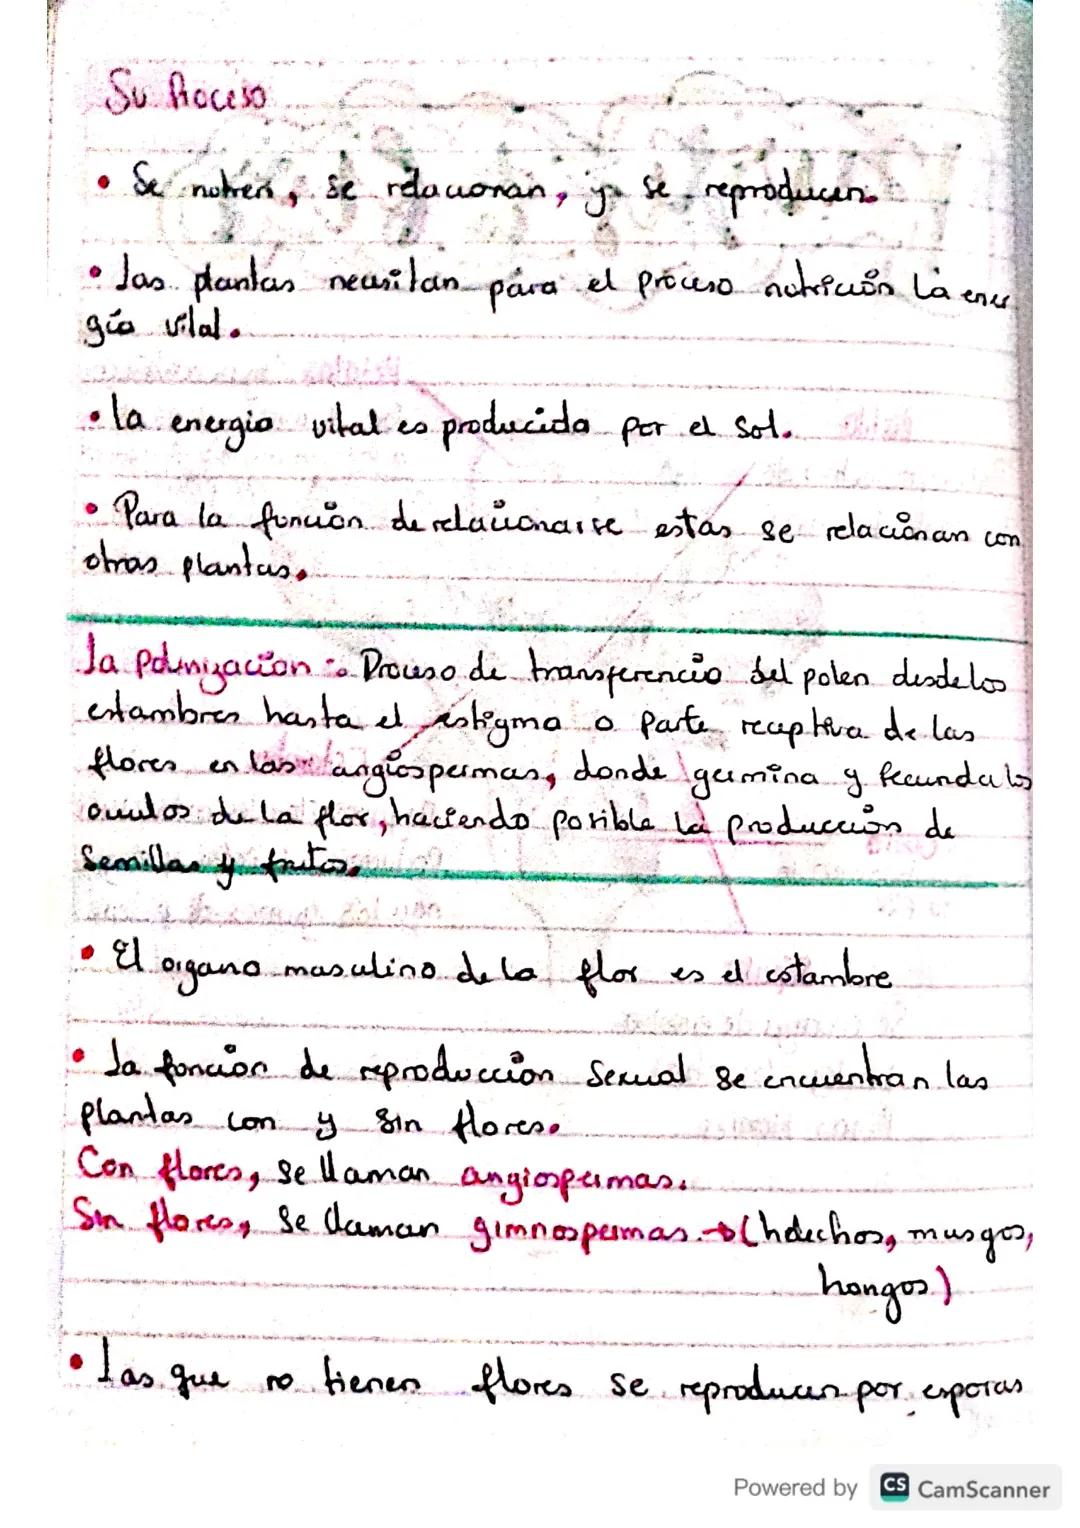 Su Proceso
• Se nutren, se relacionan, y se reproducen.
• Las plantas necesitan para el proceso nutrición La ener
gía vital.
• la energia vital es producida por el Sol.
• Para la función de relacionarse estas se relacionan con
otras plantas.
La Polinización: Proceso de transferencia del polen desde los
estambres hasta el estigma o parte receptiva de las
flores en las angiospermas, donde germina y fecunda los
ovulos de la flor, haciendo posible la producción de
Semillas y frutos.
• El organo masculino de la flor es el estambre
• La función de reproducción Sexual se encuentran las
plantas con y sin flores.
Con flores, se llaman angiospermas.
Sin flores, se llaman gimnospermas. → (helechos, musgos,
hongos)
• Las que no tienen flores se reproducen por esporas
Powered by CS CamScanner